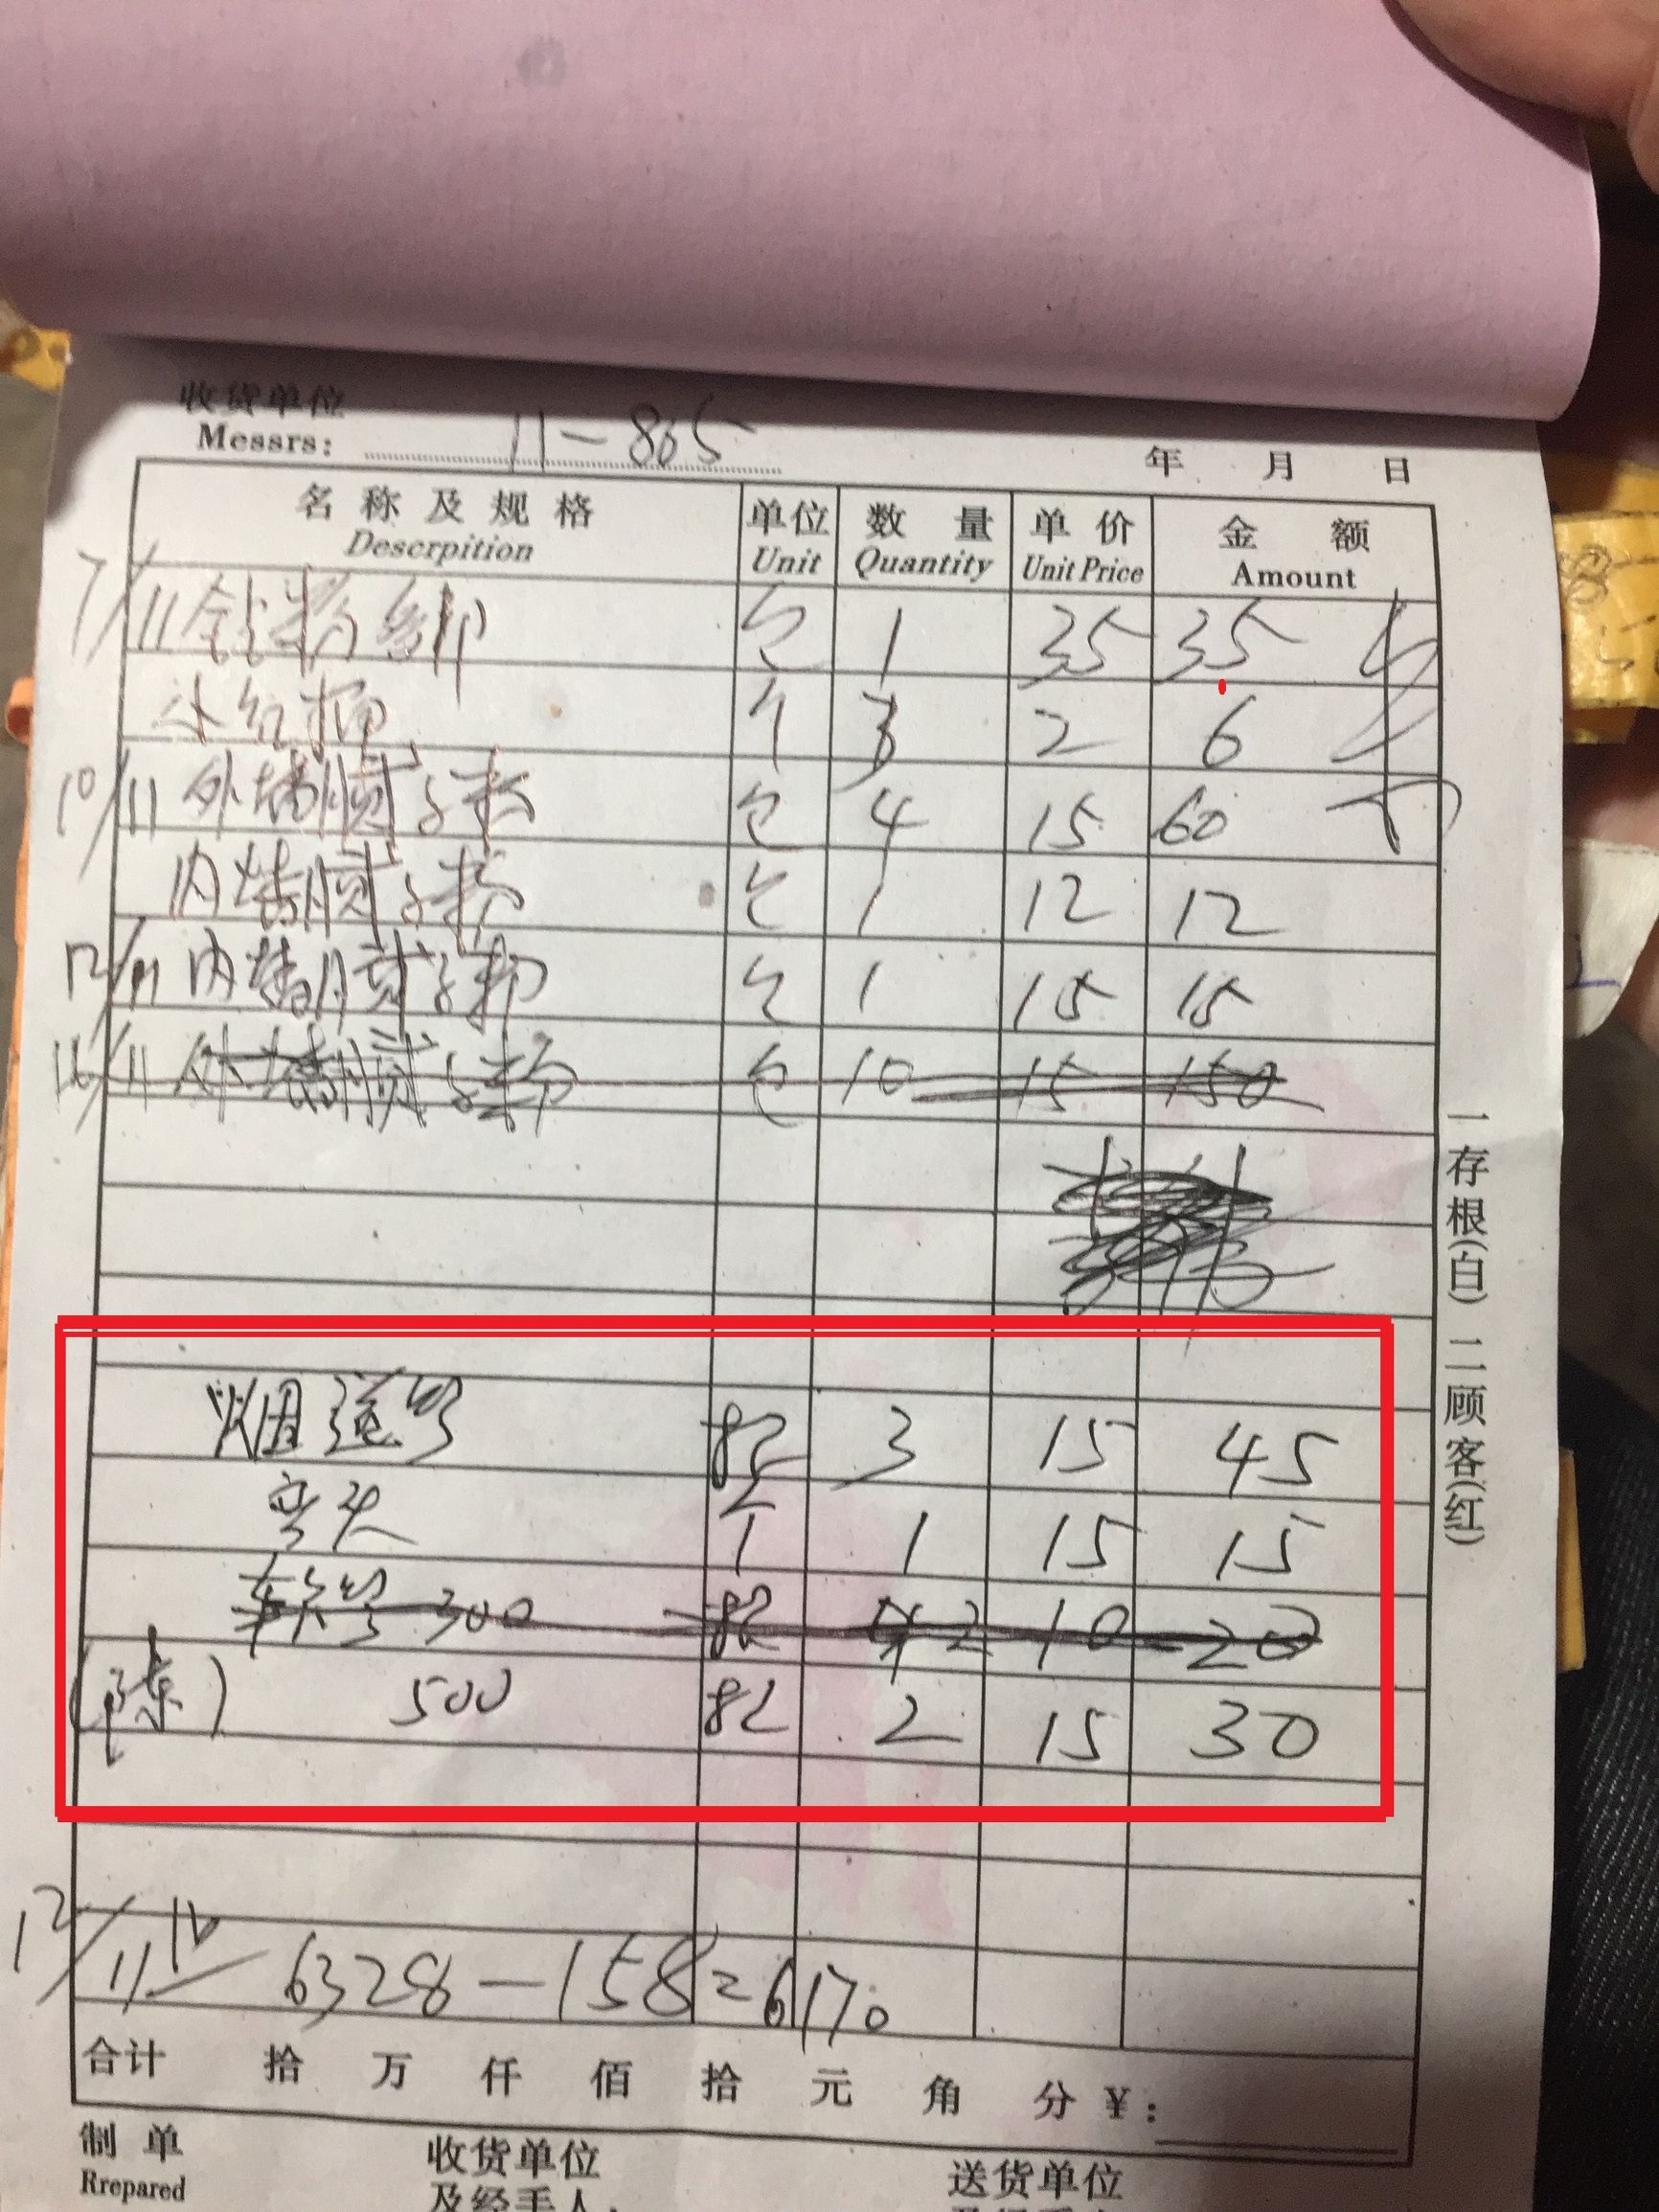 收货单位
Messrs: 11-865
年 月 日
名称及规格 单位 数量 单价 金额
Descrpition Unit Quantity Unit Price Amount
7/11 钻 包 1 35 35
水红柄 个 3 2 6
10/11 外墙腻子粉 包 4 15 60
内墙腻子粉 包 1 12 12
12/11 内墙腻子粉 包 1 15 15
16/11 外墙腻子粉 包 10 15 150
烟道管 根 3 15 45
弯头 个 1 15 15
软管 300 根 2 10 20
(陈) 500 根 2 15 30
12/11 6328-158=6170
合计 拾 万 仟 佰 拾 元 角 分 ¥:
制单 收货单位 送货单位
Rrepared 及经手人:
一存根(白) 二顾客(红)